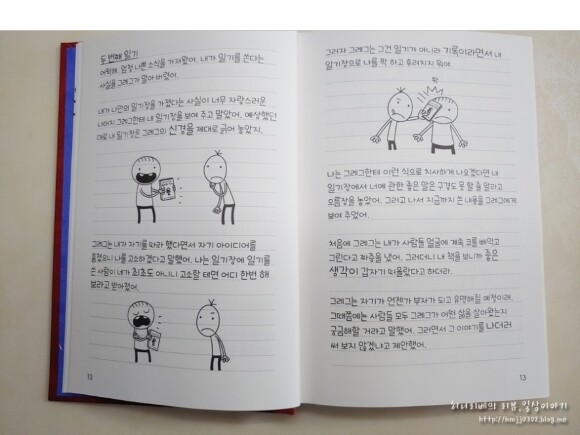 두 번째 일기
어쩌지. 엄청 나쁜 소식을 가져왔어. 내가 일기를 쓴다는
사실을 그레그가 알아 버렸어.
내가 나만의 일기장을 가졌다는 사실이 너무 자랑스러운
나머지 그레그한테 내 일기장을 보여 주고 말았어. 예상했던
대로 내 일기장은 그레그의 신경을 제대로 긁어 놓았지.
그레그는 내가 자기를 따라 했다면서 자기 아이디어를
훔쳤으니 나를 고소하겠다고 말했어. 나는 일기장에 일기를
쓴 사람이 네가 최초도 아니니 고소할 테면 어디 한번 해
보라고 받아쳤어.
12
그러자 그레그는 그건 일기가 아니라 기록이라면서 내
일기장으로 나를 퍽 하고 후려치지 뭐야.
퍽
나는 그레그한테 이런 식으로 치사하게 나오겠다면 내
일기장에서 너에 관한 좋은 말은 구경도 못 할 줄 알라고
으름장을 놓았어. 그러고 나서 지금까지 쓴 내용을 그레그에게
보여 주었어.
처음에 그레그는 내가 사람들 얼굴에 계속 코를 빼먹고
그린다고 짜증을 냈어. 그러더니 내 책을 보니까 좋은
생각이 갑자기 떠올랐다고 하더라.
그레그는 자기가 언젠가 부자가 되고 유명해질 예정이래.
그때쯤에는 사람들 모두 그레그가 어떤 삶을 살아왔는지
궁금해할 거라고 말했어. 그러면서 그 이야기를 나더러
써 보지 않겠냐고 제안했어.
13
http://hmjj0302.blog.me